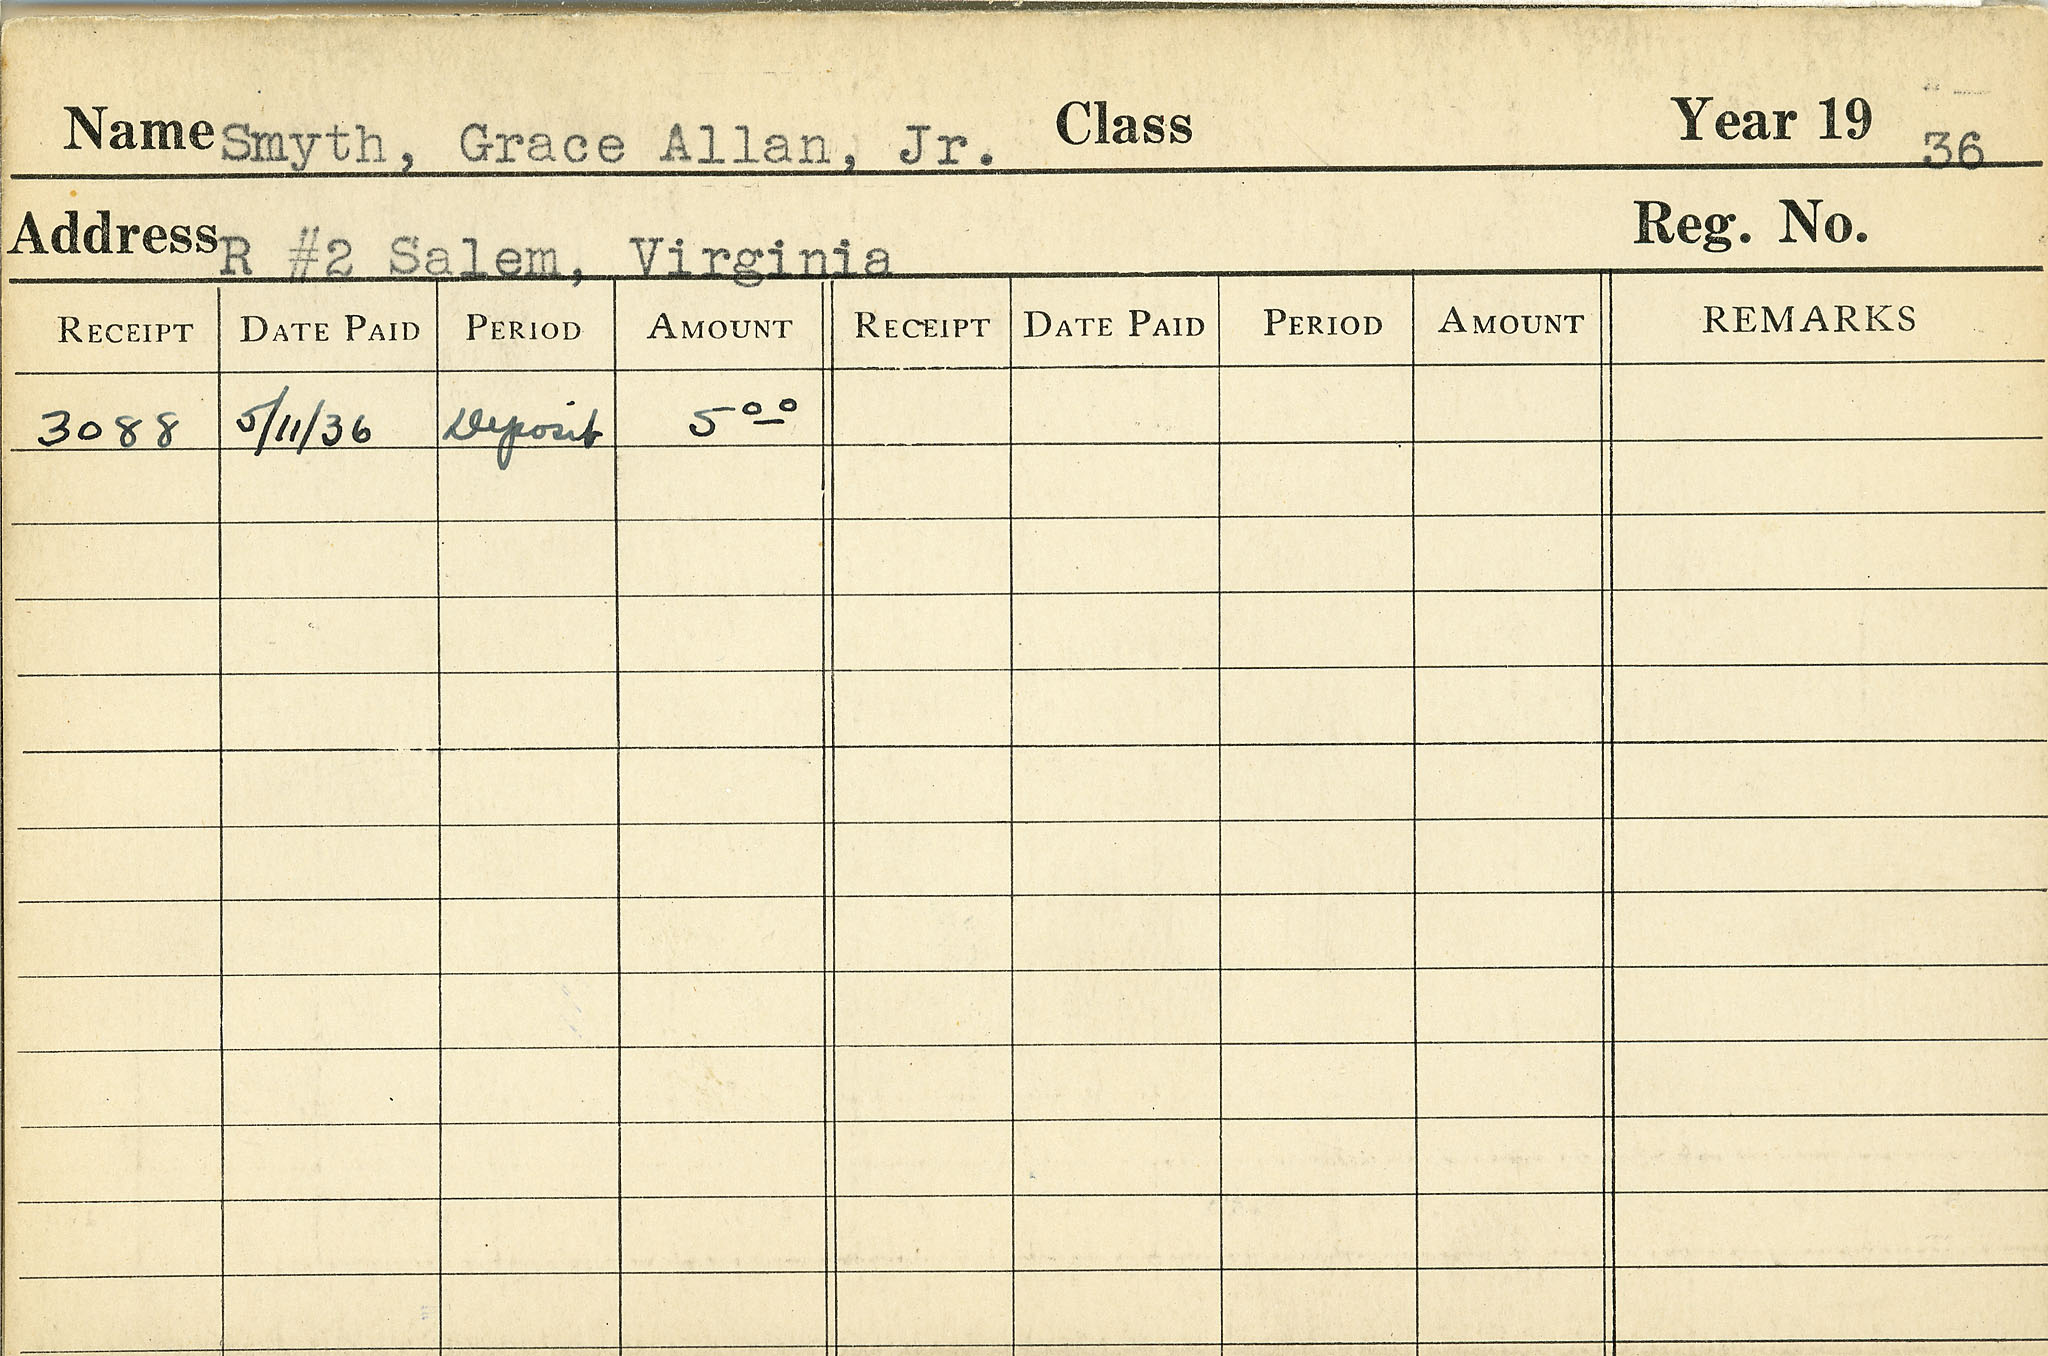 Name Smyth, Grace Allan, Jr. Class Year 19 36
Address R #2 Salem, Virginia Reg. No.
RECEIPT DATE PAID PERIOD AMOUNT RECEIPT DATE PAID PERIOD AMOUNT REMARKS
3088 5/11/36 Deposit 5 00